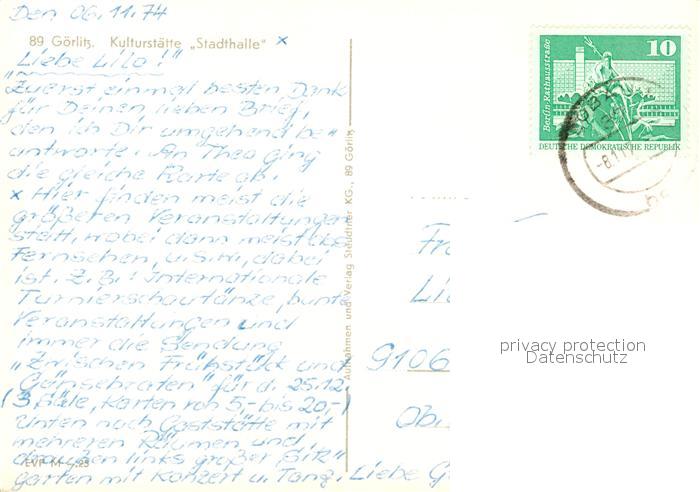 Den 06.11.74
89 Görlitz. Kulturstätte „Stadthalle" x
Liebe Lilo!"
"Zuerst einmal besten Dank
für Deinen lieben Brief,
den ich Dir umgehend be-
antworte. An Theo ging
die gleiche Karte ab.
x Hier finden meist die
größeren Veranstaltungen
statt, wobei dann meist das
Fernsehen, u.s.w., dabei
ist. Z.B.: Internationale
Turnierschautänze, bunte
Veranstaltungen und
immer die Sendung
„Zwischen Frühstück und
Gänsebraten" für d. 25.12.
(3 Säle, Karten von 5,- bis 20,-)
Unten noch Gaststätte mit
mehreren Räumen und
draußen links großer „Sitz"
garten mit Konzert u. Tanz. Liebe G
EVP M
Aufnahmen und Verlag Steudtner KG., 89 Görlitz
10
Berlin · Rathausstraße
DEUTSCHE DEMOKRATISCHE REPUBLIK
-8.11.
Fr
Li
9106
Ob.
privacy protection
Datenschutz